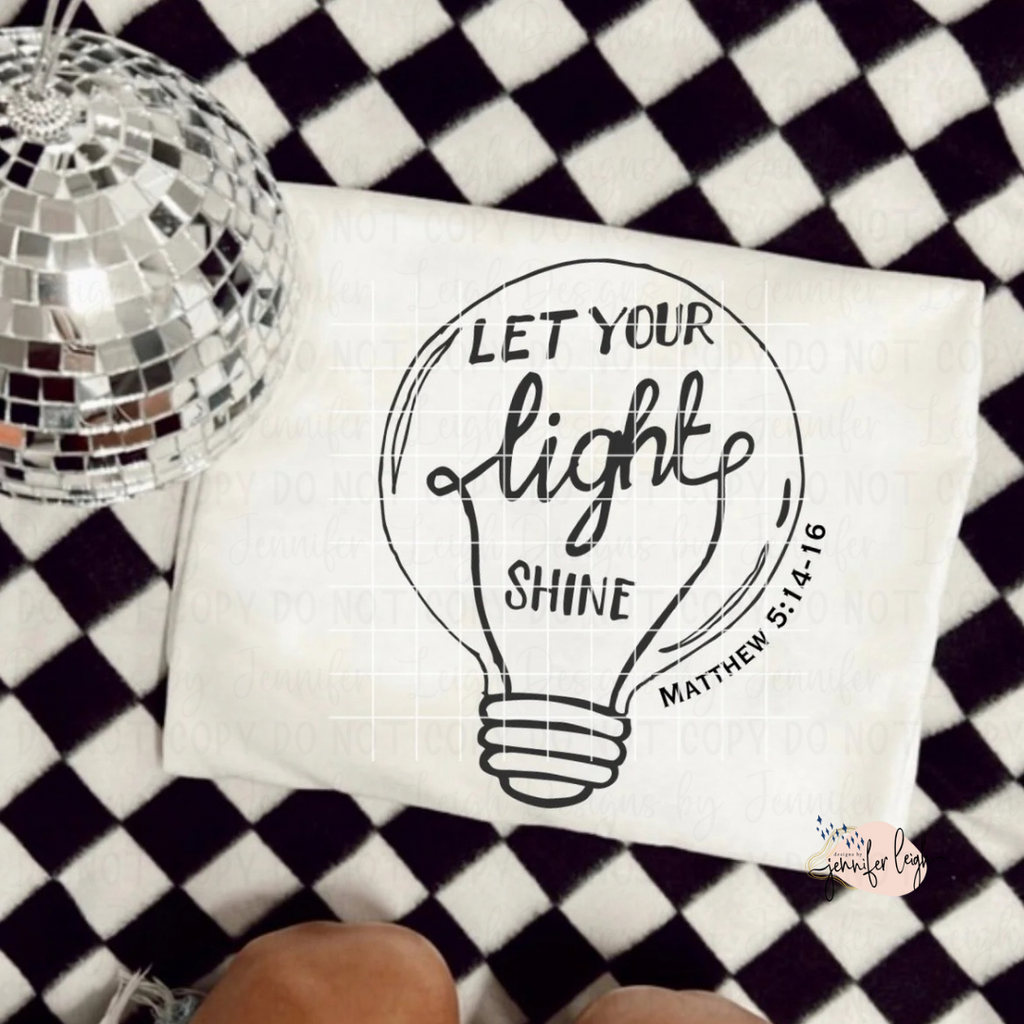 LET YOUR
light
SHINE
MATTHEW 5:14-16
designs by
jennifer leigh
DO NOT COPY DO NOT COPY DO NOT
Jennifer Leigh Designs by Jennifer